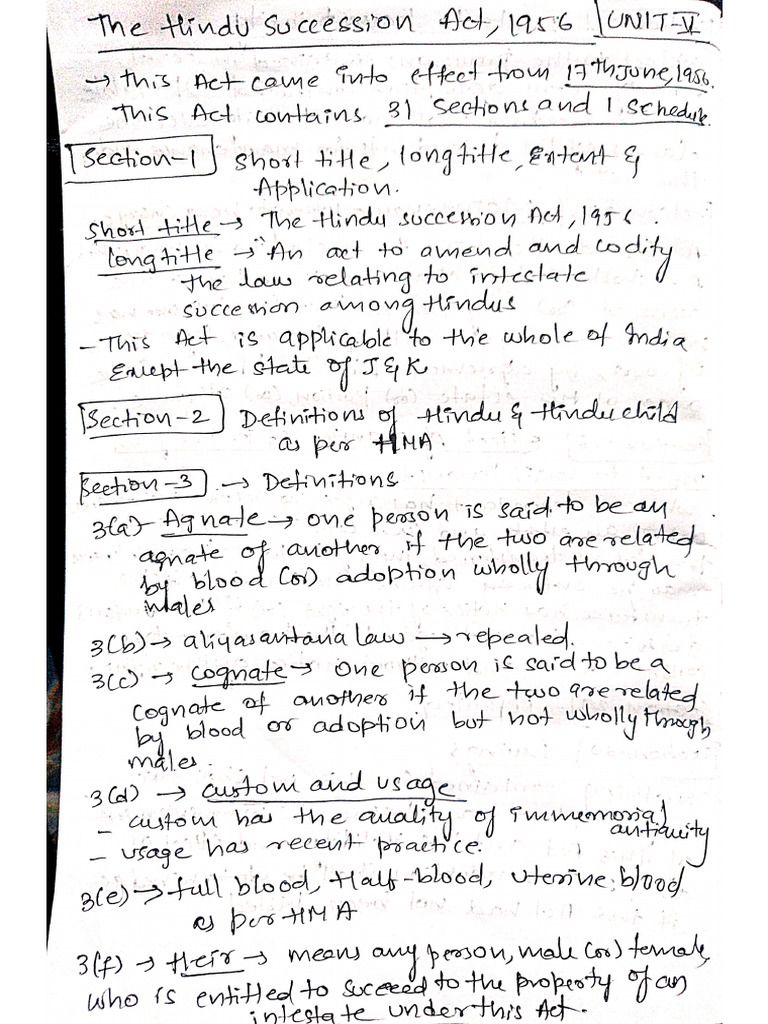 The Hindu Succession Act, 1956 UNIT-V
→ This Act came into effect from 17th June, 1956.
This Act contains 31 Sections and 1 Schedule.
Section-1 Short title, longtitle, Extent &
Application.
Short title → The Hindu succession Act, 1956.
Longtitle → "An act to amend and codity
the law relating to intestate
succession among Hindus
- This Act is applicable to the whole of India
Except the state of J & K
Section-2 Definitions of Hindu & Hindu child
as per HMA
Section-3 → Definitions
3(a)- Agnate → one person is said to be an
agnate of another if the two are related
by blood (or) adoption wholly through
males
3(b) → aliyasantana law → repealed.
3(c) → Cognate → One person is said to be a
Cognate of another if the two are related
by blood or adoption but not wholly through
males.
3(d) → custom and usage
- custom has the quality of immemorial
antiquity
- usage has recent practice.
3(e) → full blood, Half-blood, uterine blood
as per HMA
3(f) → Heir → means any person, male (or) female,
who is entitled to succeed to the property of an
intestate under this Act.